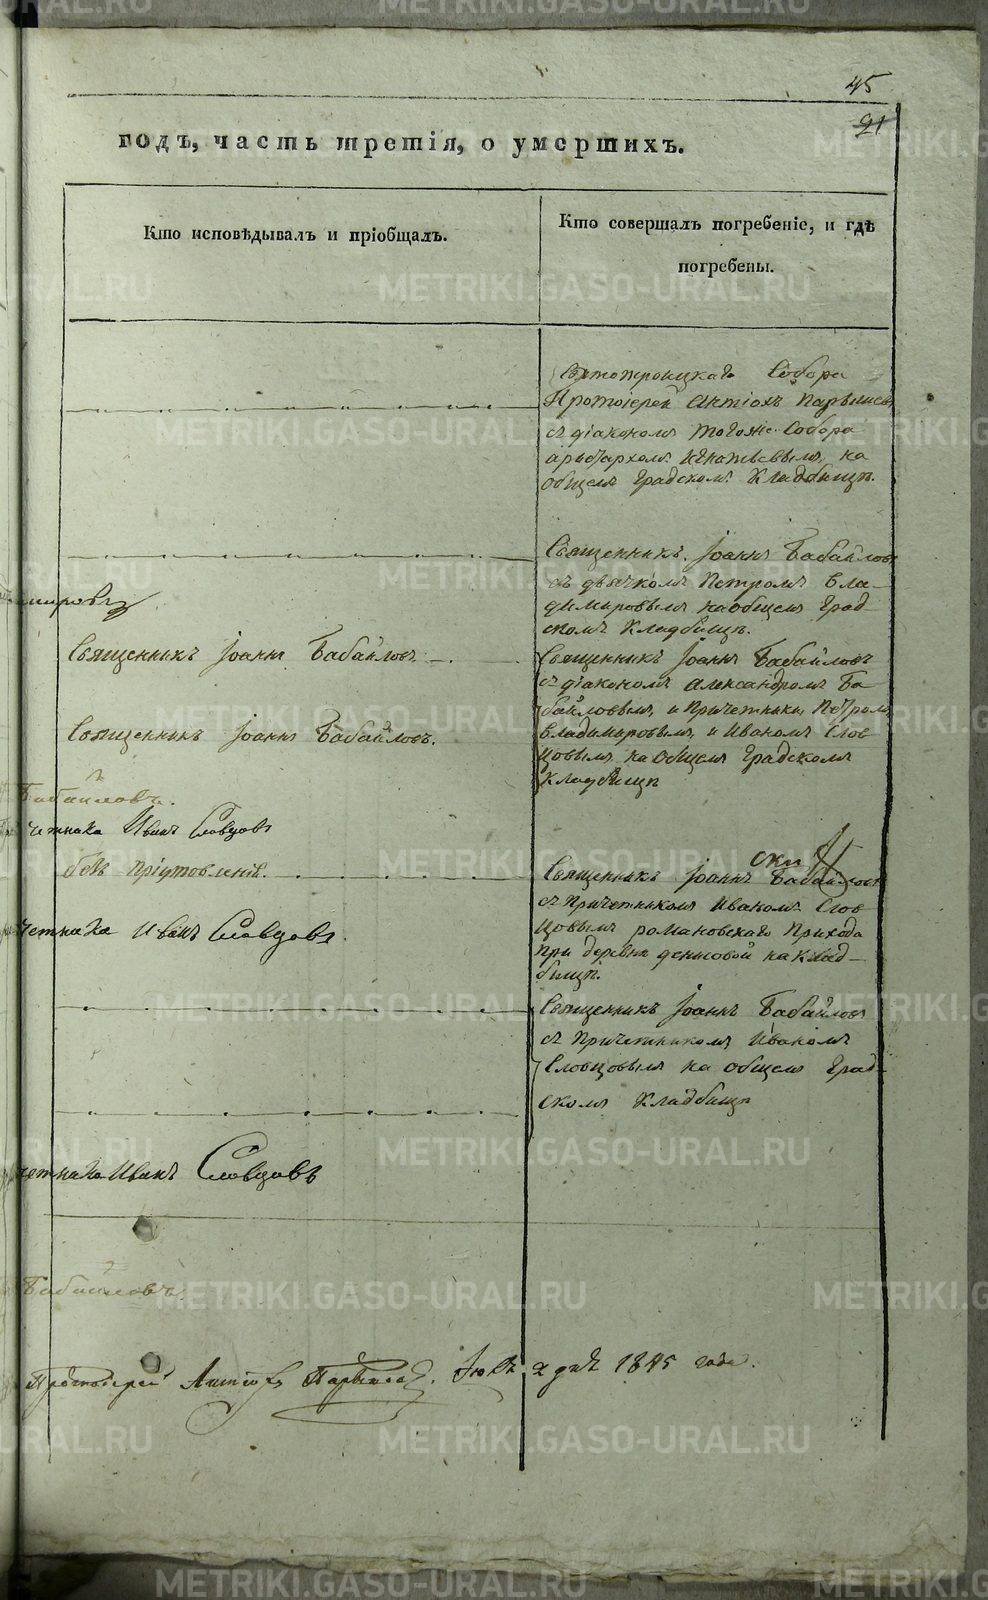 45
21
годъ, часть третія, о умершихъ.
Кто исповѣдывалъ и пріобщалъ.
Кто совершалъ погребеніе, и гдѣ
погребены.
Собора
Протоіерей Антіохъ
съ діакономъ тогоже Собора
Игнатьевымъ, на
общемъ Градскомъ Кладбищѣ.
Священникъ Іоаннъ Бабайловъ
съ дьячкомъ Петромъ Вла-
димировымъ на общемъ Град
скомъ Кладбищѣ.
Священникъ Іоаннъ Бабайловъ
Священникъ Іоаннъ Бабайловъ
съ діакономъ Александромъ Ба
байловымъ, и Причетники Петромъ
Владимировымъ, и Иваномъ Слов
цовымъ на общемъ Градскомъ
Кладбищѣ
Священникъ Іоаннъ Бабайловъ.
Бабайловъ.
Иванъ Словцовъ
безъ пріуготовленія.
ски
Священникъ Іоаннъ Бабайловъ
съ Причетникомъ Иваномъ Слов
цовымъ романовскаго Прихода
при деревнѣ денисовой на Клад-
бищѣ.
четника Иванъ Словцовъ
Священникъ Іоаннъ Бабайловъ
съ Причетникомъ Иваномъ
Словцовымъ на общемъ Град-
скомъ Кладбищѣ
четника Иванъ Словцовъ
Бабайловъ
Протоіерей Антіохъ 2 дня 1845 года.
METRIKI.GASO-URAL.RU